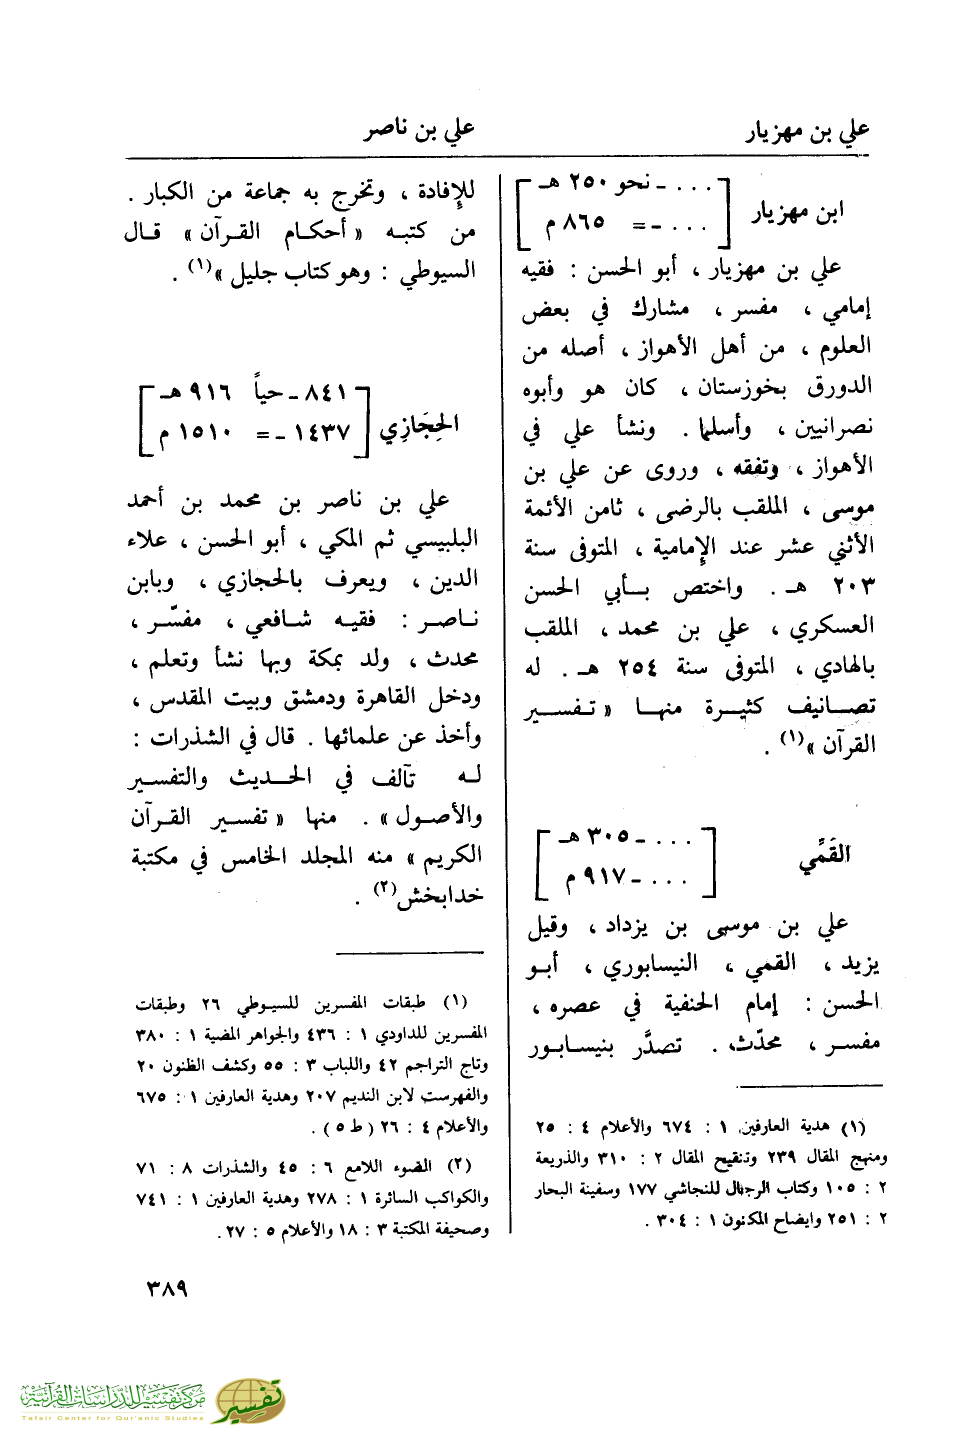 علي بن مهزيار
علي بن ناصر
ابن مهزيار
. . . ـ نحو ٢٥٠ هـ
. . . ـ = ٨٦٥ م
علي بن مهزيار ، أبو الحسن : فقيه
إمامي ، مفسر ، مشارك في بعض
العلوم ، من أهل الأهواز ، أصله من
الدورق بخوزستان ، كان هو وأبوه
نصرانيين ، وأسلما . ونشأ علي في
الأهواز ، وتفقه ، وروى عن علي بن
موسى ، الملقب بالرضى ، ثامن الأئمة
الأثني عشر عند الإمامية ، المتوفى سنة
٢٠٣ هـ . واختص بـأبي الحسن
العسكري ، علي بن محمد ، الملقب
بالهادي ، المتوفى سنة ٢٥٤ هـ . له
تصـانيف كثيـرة منهـا « تـفسـير
القرآن »(١) .
القَمِّي
. . . ـ ٣٠٥ هـ
. . . ـ ٩١٧ م
علي بن موسى بن يزداد ، وقيل
يزيد ، القمي ، النيسابوري ، أبـو
الحسن : إمام الحنفية في عصره ،
مفسـر ، محدّث . تصدَّر بنيسـابور
(١) هدية العارفين ١ : ٦٧٤ والأعلام ٤ : ٢٥
ومنهج المقال ٢٣٩ وتنقيح المقال ٢ : ٣١٠ والذريعة
٢ : ١٠٥ وكتاب الرجال للنجاشي ١٧٧ وسفينة البحار
٢ : ٢٥١ وايضاح المكنون ١ : ٣٠٤ .
للإفادة ، وتخرج به جماعة من الكبار .
من كتبـه « أحكـام القـرآن » قـال
السيوطي : وهو كتاب جليل »(١) .
الحِجَازِي
٨٤١ ـ حياً ٩١٦ هـ
١٤٣٧ ـ = ١٥١٠ م
علي بن ناصر بن محمد بن أحمد
البلبيسي ثم المكي ، أبو الحسن ، علاء
الدين ، ويعرف بالحجازي ، وبابن
نـاصـر : فقيـه شـافعي ، مفسّـر ،
محدث ، ولد بمكة وبها نشأ وتعلم ،
ودخل القاهرة ودمشق وبيت المقدس ،
وأخذ عن علمائها . قال في الشذرات :
لـه تآلف في الحـديث والتفسـير
والأصـول » . منهـا « تفسـير القـرآن
الكريم » منه المجلد الخامس في مكتبة
خدابخش(٢) .
(١) طبقات المفسرين للسيـوطي ٢٦ وطبقات
المفسرين للداودي ١ : ٤٣٦ والجواهر المضية ١ : ٣٨٠
وتاج التراجم ٤٢ واللباب ٣ : ٥٥ وكشف الظنون ٢٠
والفهرست لابن النديم ٢٠٧ وهدية العارفين ١ : ٦٧٥
والأعلام ٤ : ٢٦ ( ط ٥ ) .
(٢) الضوء اللامع ٦ : ٤٥ والشذرات ٨ : ٧١
والكواكب السائرة ١ : ٢٧٨ وهدية العارفين ١ : ٧٤١
وصحيفة المكتبة ٣ : ١٨ والأعلام ٥ : ٢٧ .
٣٨٩
مركز تفسير للدراسات القرآنية
Tafsir Center for Qur'anic Studies
تفسير